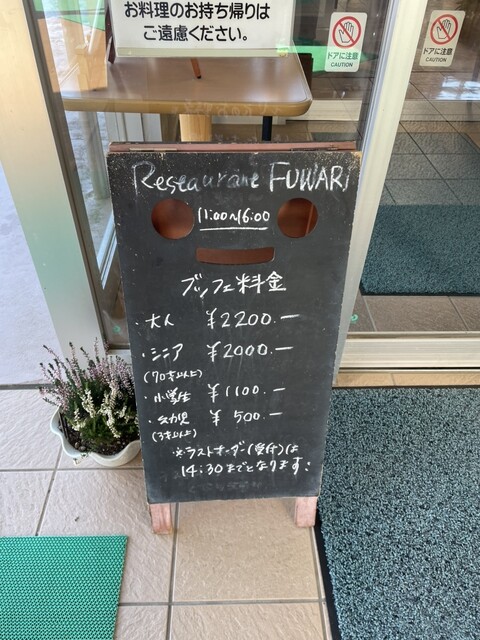 お料理のお持ち帰りは
ご遠慮ください。
ドアに注意
CAUTION
ドアに注意
CAUTION
Restaurant FUWARI
11:00~16:00
ブッフェ料金
・大人 ¥2200.-
・シニア ¥2000.-
(70才以上)
・小学生 ¥1100.-
・幼児 ¥500.-
(3才以上)
※ラストオーダー(受付)は
14:30までとなります。